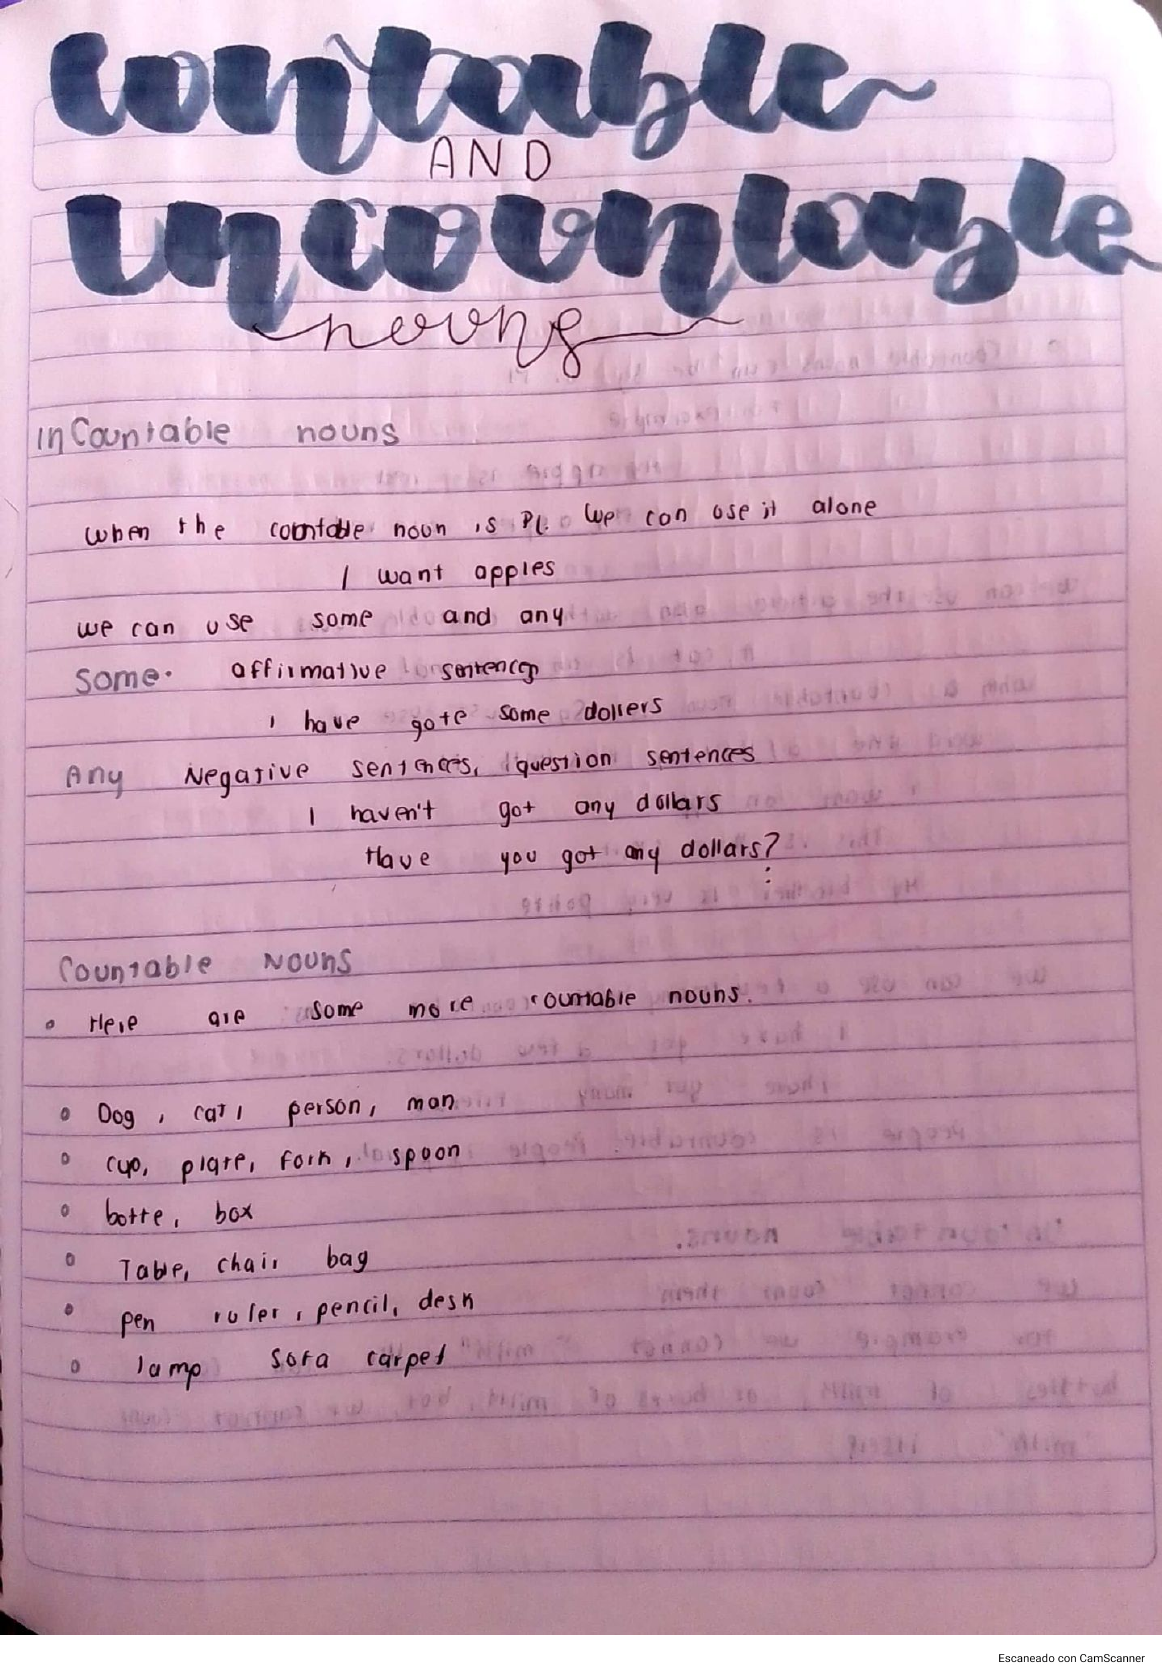 Countable
AND
Uncountable
nouns
inCountable nouns
when the countable noun is PL. We can use it alone
I want apples
we can use some and any
Some. affirmative sentences
I have gote some dollers
Any Negative sentences, question sentences
I haven't got any dollars
Have you got any dollars?
Countable Nouns
Here are some more countable nouns.
Dog, cat, person, man
cup, plate, fork, spoon
botte, box
Table, chair bag
pen ruler, pencil, desk
lamp sofa carpet
Escaneado con CamScanner